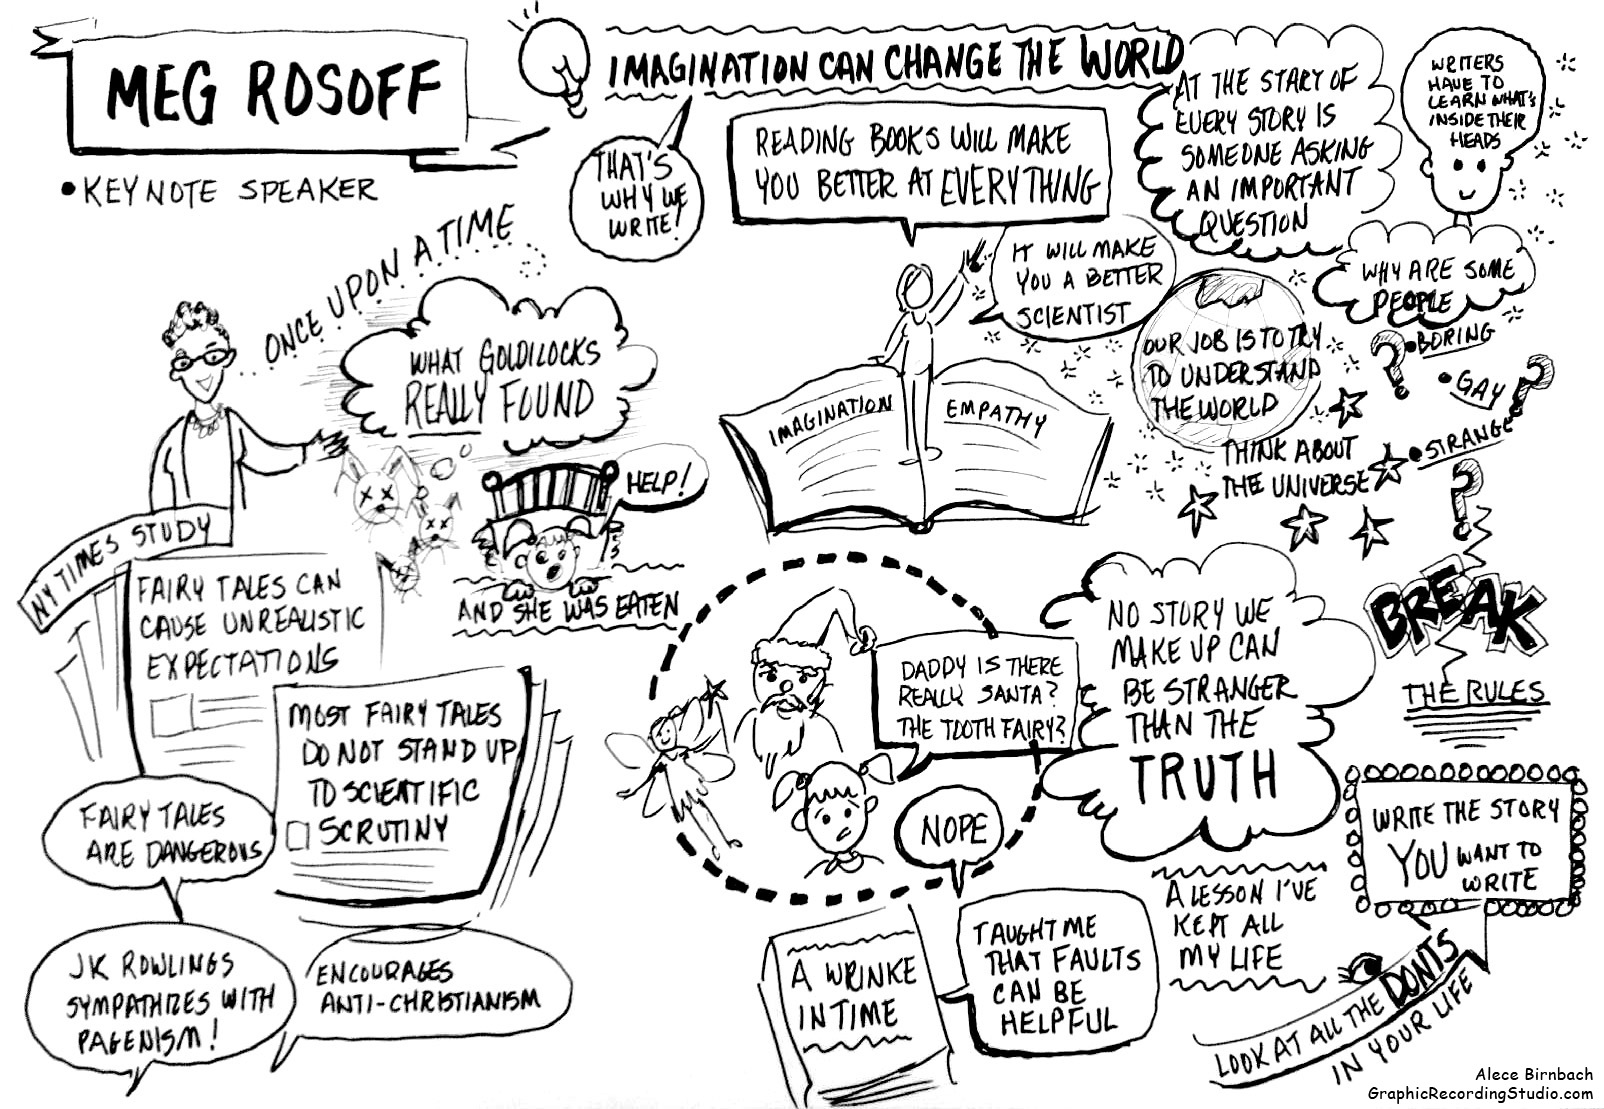 MEG ROSOFF
• KEYNOTE SPEAKER
IMAGINATION CAN CHANGE THE WORLD
THAT'S
WHY WE
WRITE!
READING BOOKS WILL MAKE
YOU BETTER AT EVERYTHING
IT WILL MAKE
YOU A BETTER
SCIENTIST
AT THE START OF
EVERY STORY IS
SOMEONE ASKING
AN IMPORTANT
QUESTION
WRITERS
HAVE TO
LEARN WHAT'S
INSIDE THEIR
HEADS
WHY ARE SOME
PEOPLE
• BORING
• GAY
• STRANGE
? ? ?
ONCE UPON A TIME
WHAT GOLDILOCKS
REALLY FOUND
HELP!
AND SHE WAS EATEN
IMAGINATION
EMPATHY
OUR JOB IS TO TRY
TO UNDERSTAND
THE WORLD
THINK ABOUT
THE UNIVERSE
NY TIMES STUDY
FAIRY TALES CAN
CAUSE UNREALISTIC
EXPECTATIONS
MOST FAIRY TALES
DO NOT STAND UP
TO SCIENTIFIC
SCRUTINY
FAIRY TALES
ARE DANGEROUS
JK ROWLINGS
SYMPATHIZES WITH
PAGENISM!
ENCOURAGES
ANTI-CHRISTIANISM
DADDY IS THERE
REALLY SANTA?
THE TOOTH FAIRY?
NOPE
NO STORY WE
MAKE UP CAN
BE STRANGER
THAN THE
TRUTH
BREAK
THE RULES
WRITE THE STORY
YOU WANT TO
WRITE
A WRINKE
IN TIME
TAUGHT ME
THAT FAULTS
CAN BE
HELPFUL
A LESSON I'VE
KEPT ALL
MY LIFE
LOOK AT ALL THE DONTS
IN YOUR LIFE
Alece Birnbach
GraphicRecordingStudio.com